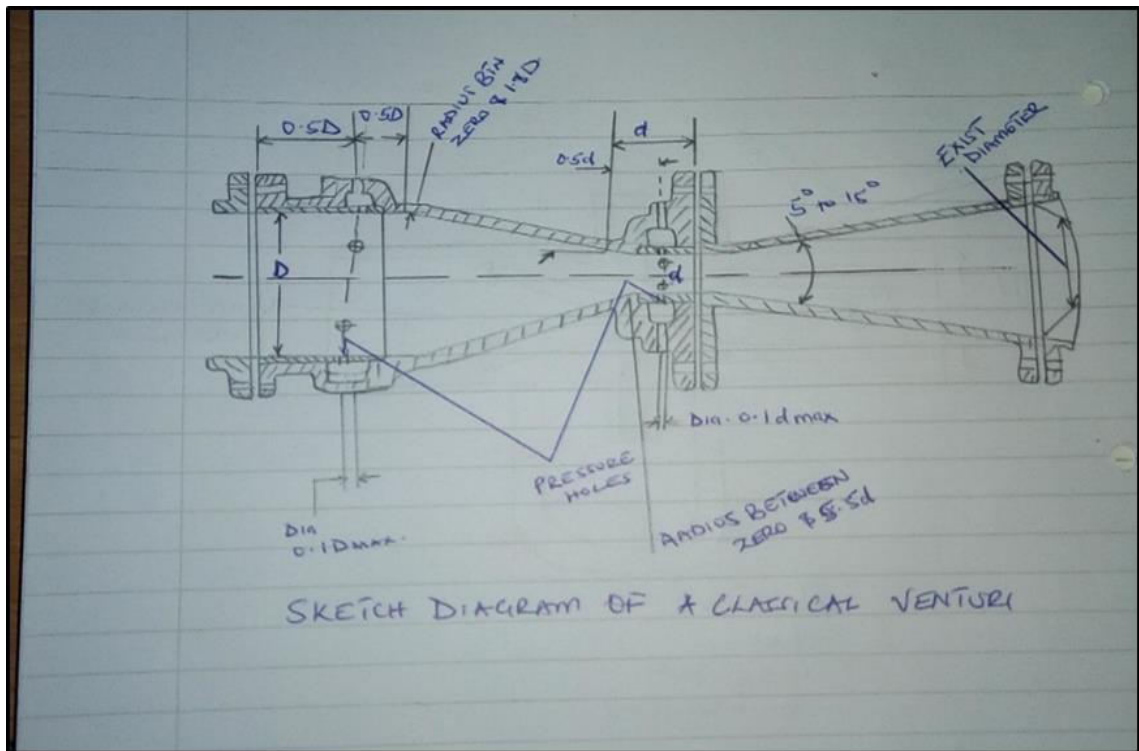 0.5D
0.5D
RADIUS BTN
ZERO & 1.8D
0.5d
d
EXIST
DIAMETER
5° to 15°
D
d
DIA. 0.1dmax
PRESSURE
HOLES
DIA
0.1DMAX.
RADIUS BETWEEN
ZERO & 5.5d
SKETCH DIAGRAM OF A CLASSICAL VENTURI